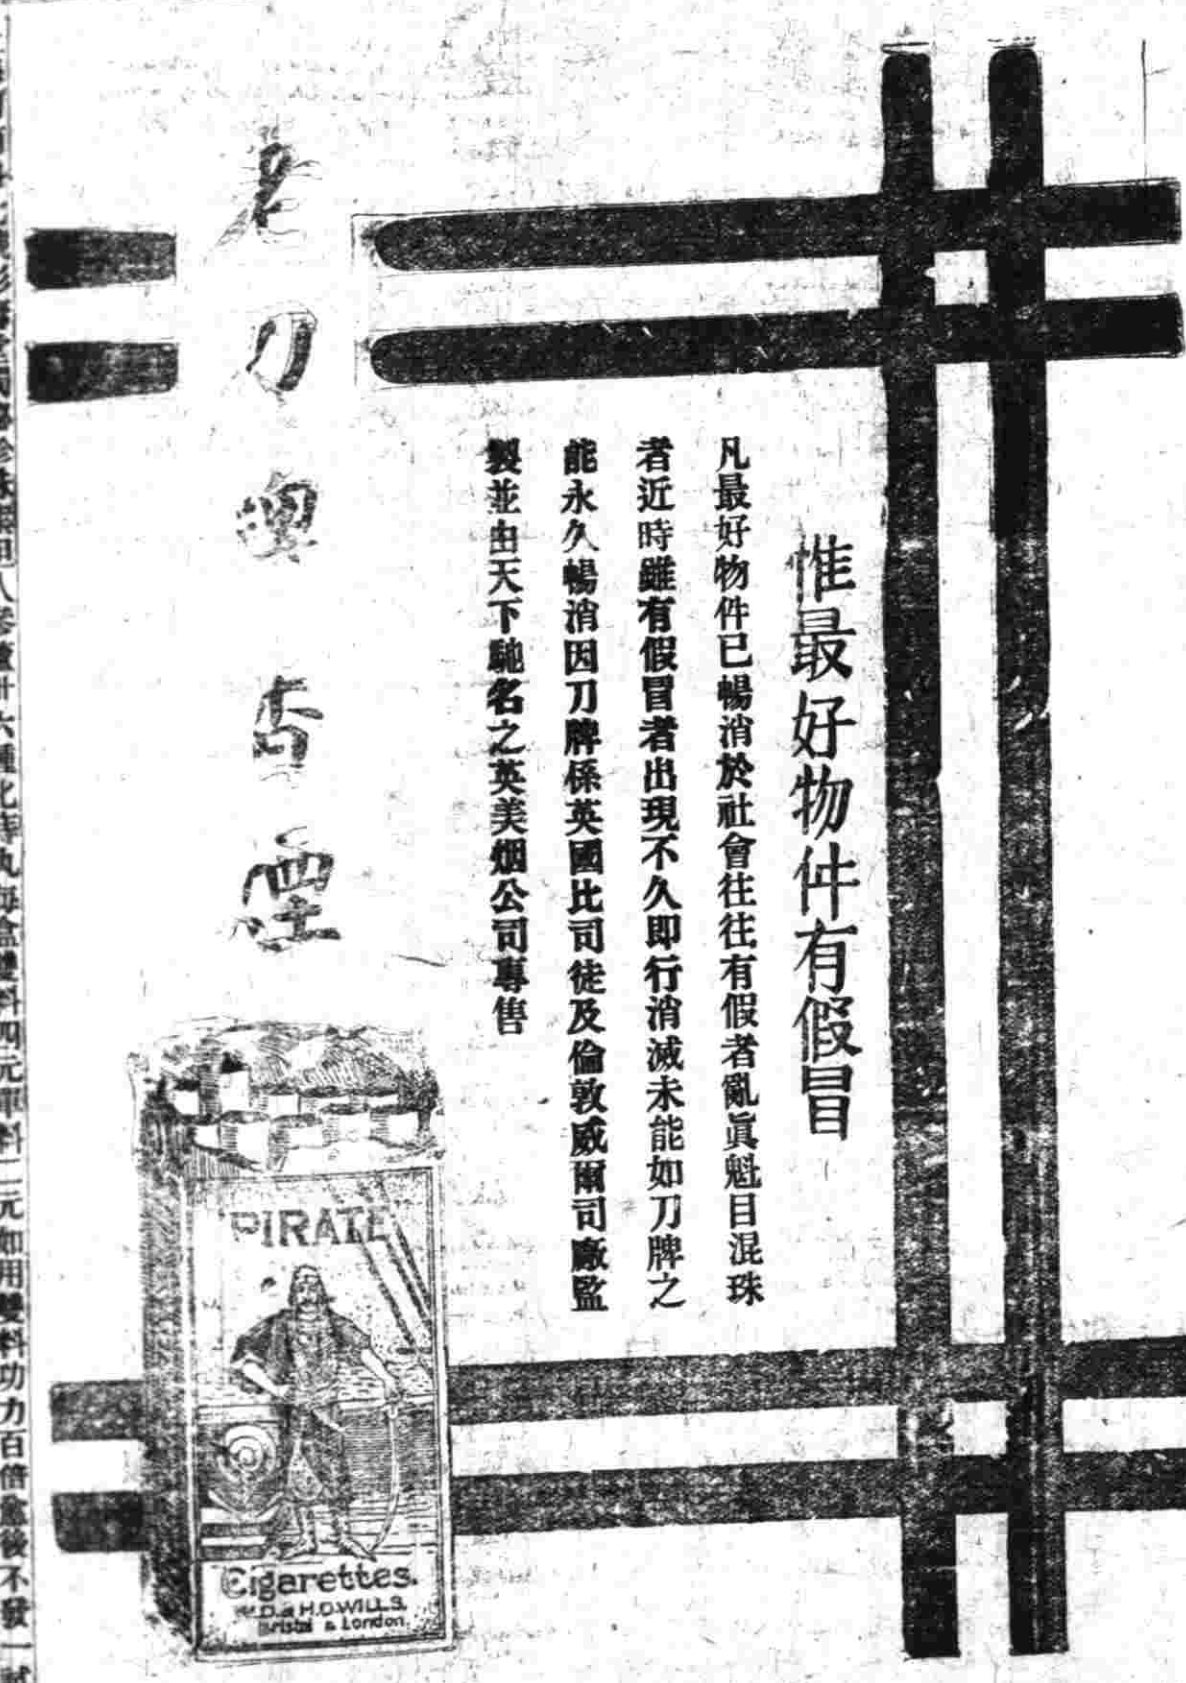 惟最好物件有假冒
凡最好物件已暢消於社會往往有假者亂眞魁目混珠
者近時雖有假冒者出現不久即行消滅未能如刀牌之
能永久暢消因刀牌係英國比司徒及倫敦威爾司廠監
製並由天下馳名之英美烟公司專售
老刀牌香煙
PIRATE
Cigarettes.
W.D. & H.O. WILLS.
Bristol & London.
六種化痔丸每盒雙料四元單料二元如用雙料功力百倍愈後不發一試